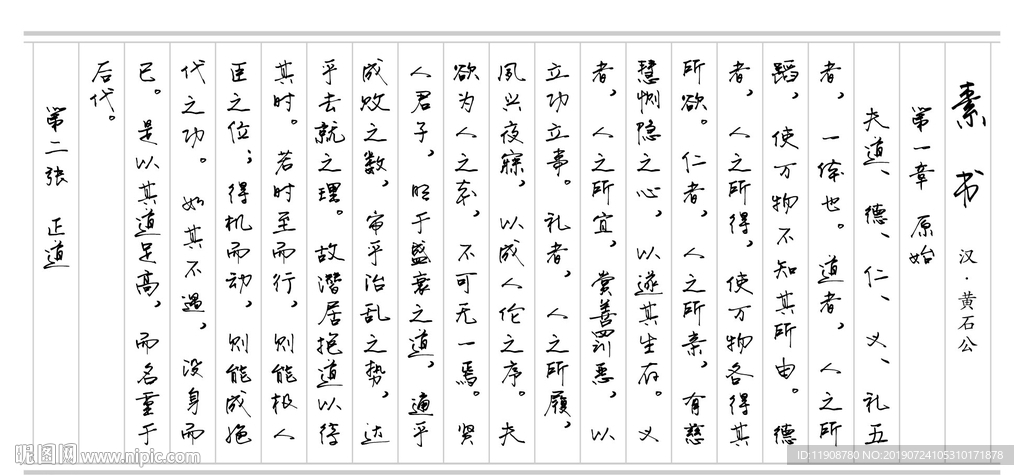 素书 汉·黄石公
第一章 原始
夫道、德、仁、义、礼五
者，一体也。道者，人之所
蹈，使万物不知其所由。德
者，人之所得，使万物各得其
所欲。仁者，人之所亲，有慈
慧恻隐之心，以遂其生存。义
者，人之所宜，赏善罚恶，以
立功立事。礼者，人之所履，
夙兴夜寐，以成人伦之序。夫
欲为人之本，不可无一焉。贤
人君子，明于盛衰之道，通乎
成败之数，审乎治乱之势，达
乎去就之理。故潜居抱道以待
其时。若时至而行，则能极人
臣之位；得机而动，则能成绝
代之功。如其不遇，没身而
已。是以其道足高，而名重于
后代。
第二张 正道
昵图网 www.nipic.com
ID:11908780 NO:20190724105310171878